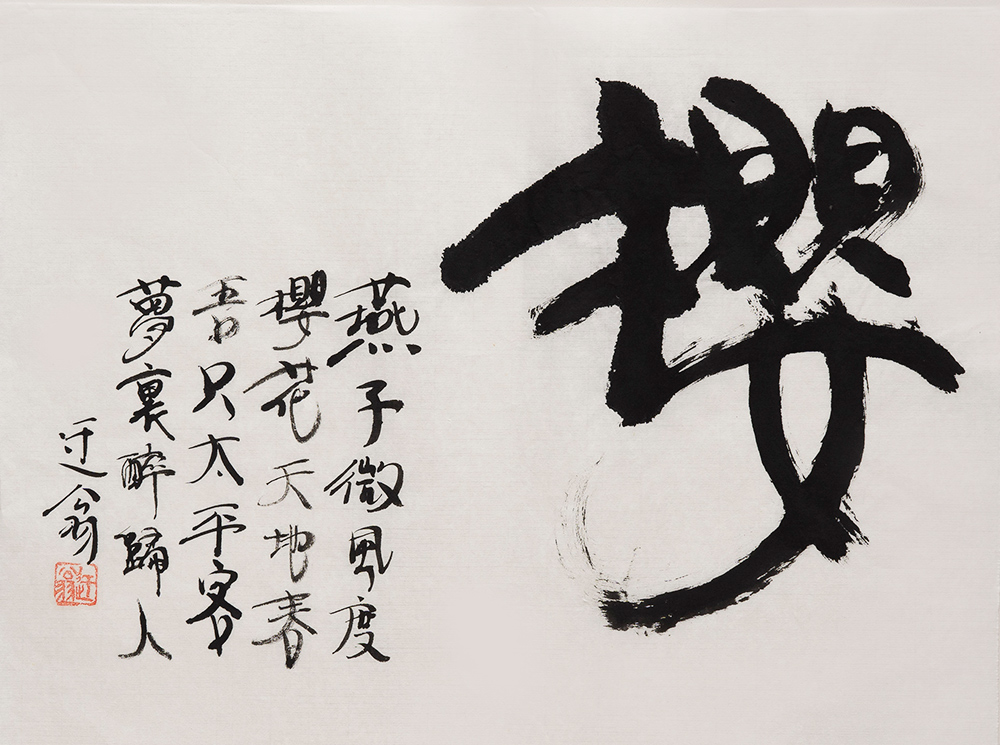 櫻
燕子微風度
櫻花天地春
吾只太平客
夢裏醉歸人
迂翁
迂翁